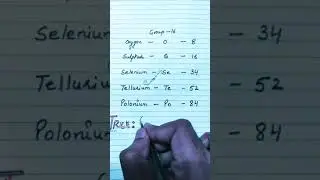 Group-16
Oxygen - O - 8
Sulphur - S - 16
Selenium - Se - 34
Tellurium - Te - 52
Polonium - Po - 84
Trick:
Selenium
- 34
Tellurium
- 52
Polonium
- 84